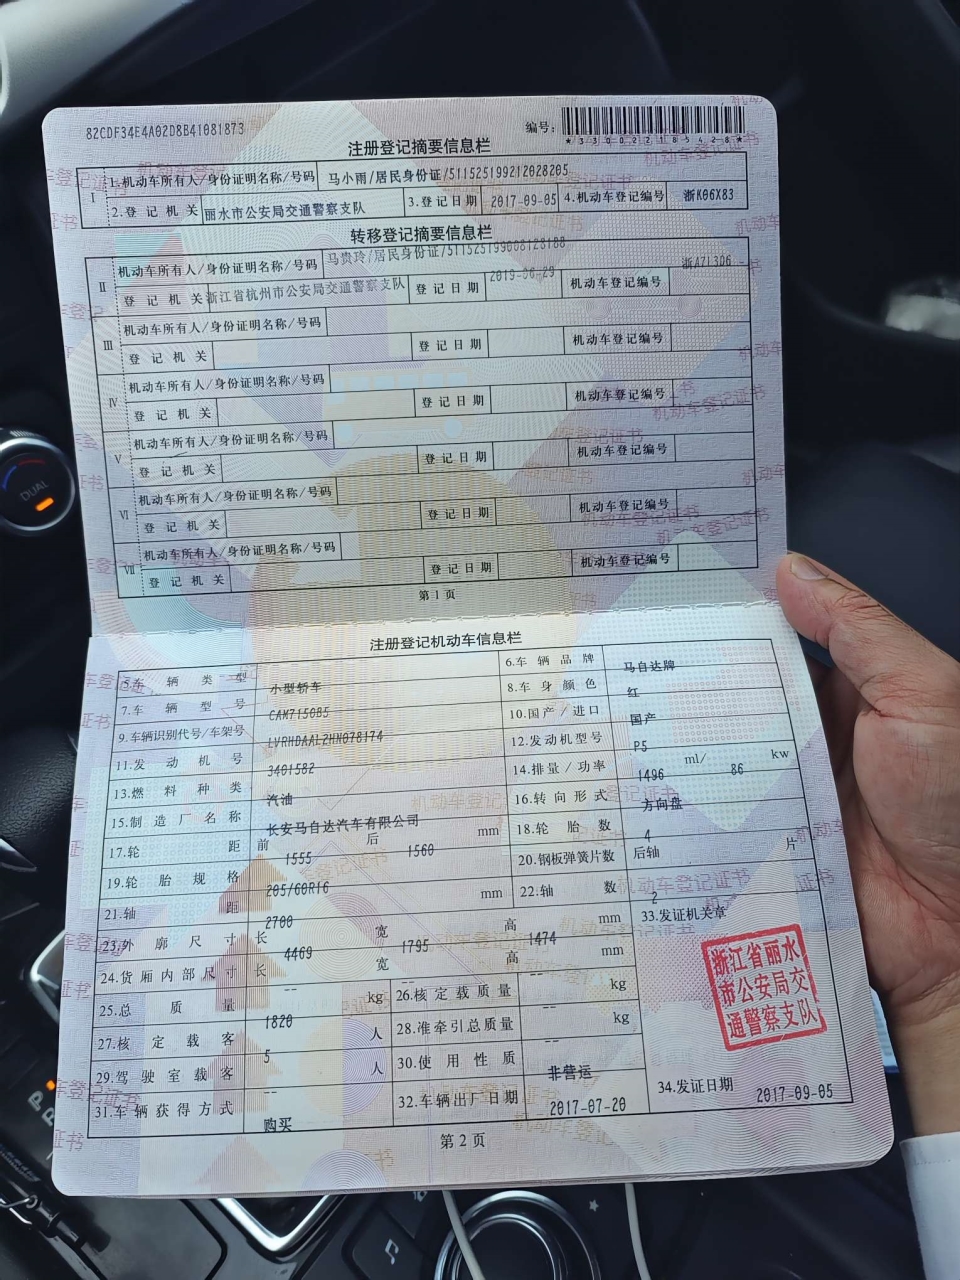 82CDF34E4A02D8B41081873
编号:
*330022185428*
注册登记摘要信息栏
I 1.机动车所有人/身份证明名称/号码 马小雨/居民身份证/511525199212028205
2.登记机关 丽水市公安局交通警察支队 3.登记日期 2017-09-05 4.机动车登记编号 浙K06X83
转移登记摘要信息栏
II 机动车所有人/身份证明名称/号码 马贵玲/居民身份证/
登记机关 浙江省杭州市公安局交通警察支队 登记日期 2019-06-25 机动车登记编号 浙A7L3D6
III 机动车所有人/身份证明名称/号码
登记机关 登记日期 机动车登记编号
IV 机动车所有人/身份证明名称/号码
登记机关 登记日期 机动车登记编号
V 机动车所有人/身份证明名称/号码
登记机关 登记日期 机动车登记编号
VI 机动车所有人/身份证明名称/号码
登记机关 登记日期 机动车登记编号
VII 机动车所有人/身份证明名称/号码
登记机关 登记日期 机动车登记编号
第1页
注册登记机动车信息栏
5.车辆类型 小型轿车 6.车辆品牌 马自达牌
7.车辆型号 CAM7150B5 8.车身颜色 红
9.车辆识别代号/车架号 LVRHDAAL2HN078174 10.国产/进口 国产
11.发动机号 3401582 12.发动机型号 P5
13.燃料种类 汽油 14.排量/功率 1496 ml/ 86 kw
15.制造厂名称 长安马自达汽车有限公司 16.转向形式 方向盘
17.轮距 前 1555 后 1560 mm 18.轮胎数 4
19.轮胎规格 205/60R16 20.钢板弹簧片数 后轴 片
21.轴距 2700 mm 22.轴数 2
23.外廓尺寸 长 4469 宽 1795 高 1474 mm 33.发证机关章
24.货厢内部尺寸 长 -- 宽 -- 高 -- mm
浙江省丽水
市公安局交
通警察支队
25.总质量 1820 kg 26.核定载质量 -- kg
27.核定载客 5 人 28.准牵引总质量 -- kg
29.驾驶室载客 -- 人 30.使用性质 非营运
31.车辆获得方式 购买 32.车辆出厂日期 2017-07-20 34.发证日期 2017-09-05
第2页
DUAL
P
R